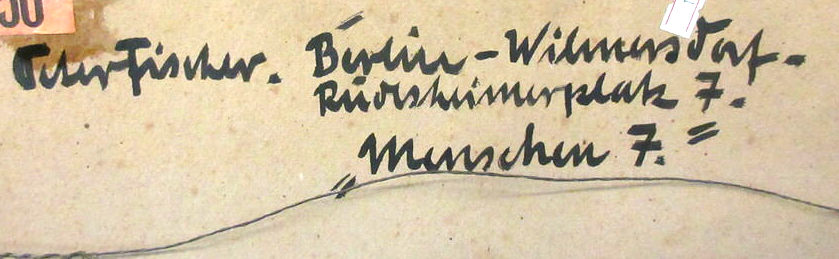 50
Peter Fischer. Berlin-Wilmersdorf.
Rüdesheimerplatz 7.
„Menschen 7."